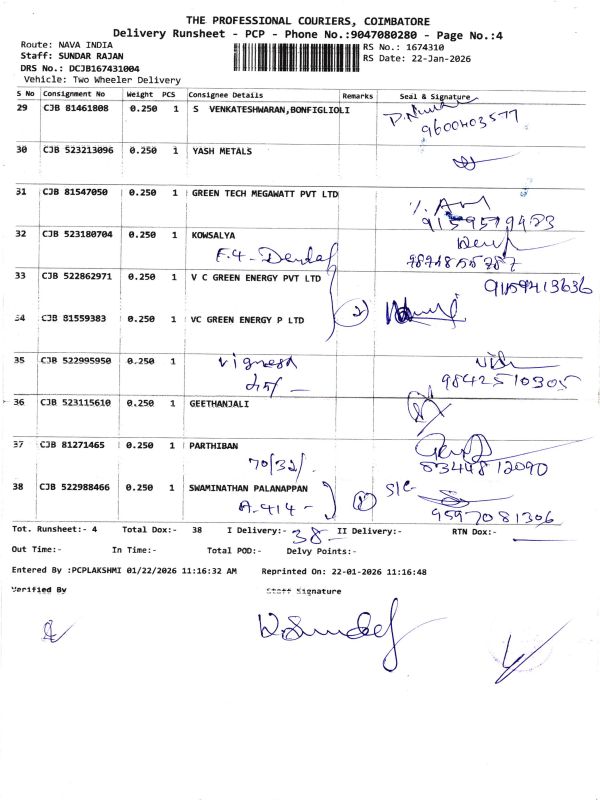 THE PROFESSIONAL COURIERS, COIMBATORE
Delivery Runsheet - PCP - Phone No.:9047080280 - Page No.:4
Route: NAVA INDIA
RS No.: 1674310
Staff: SUNDAR RAJAN
RS Date: 22-Jan-2026
DRS No.: DCJB167431004
Vehicle: Two Wheeler Delivery
S No Consignment No Weight PCS Consignee Details Remarks Seal & Signature
29 CJB 81461808 0.250 1 S VENKATESHWARAN,BONFIGLIOLI
9600403577
30 CJB 523213096 0.250 1 YASH METALS
31 CJB 81547050 0.250 1 GREEN TECH MEGAWATT PVT LTD
9159579483
32 CJB 523180704 0.250 1 KOWSALYA
F.4-Dental
33 CJB 522862971 0.250 1 V C GREEN ENERGY PVT LTD
9159413636
34 CJB 81559383 0.250 1 VC GREEN ENERGY P LTD
2
35 CJB 522995950 0.250 1 Vignesh
9842510305
36 CJB 523115610 0.250 1 GEETHANJALI
37 CJB 81271465 0.250 1 PARTHIBAN
70/32/.
8344812090
38 CJB 522988466 0.250 1 SWAMINATHAN PALANAPPAN
A-414-
9597081306
Tot. Runsheet:- 4 Total Dox:- 38 I Delivery:- 38- II Delivery:- RTN Dox:-
Out Time:- In Time:- Total POD:- Delvy Points:-
Entered By :PCPLAKSHMI 01/22/2026 11:16:32 AM Reprinted On: 22-01-2026 11:16:48
Verified By Staff Signature